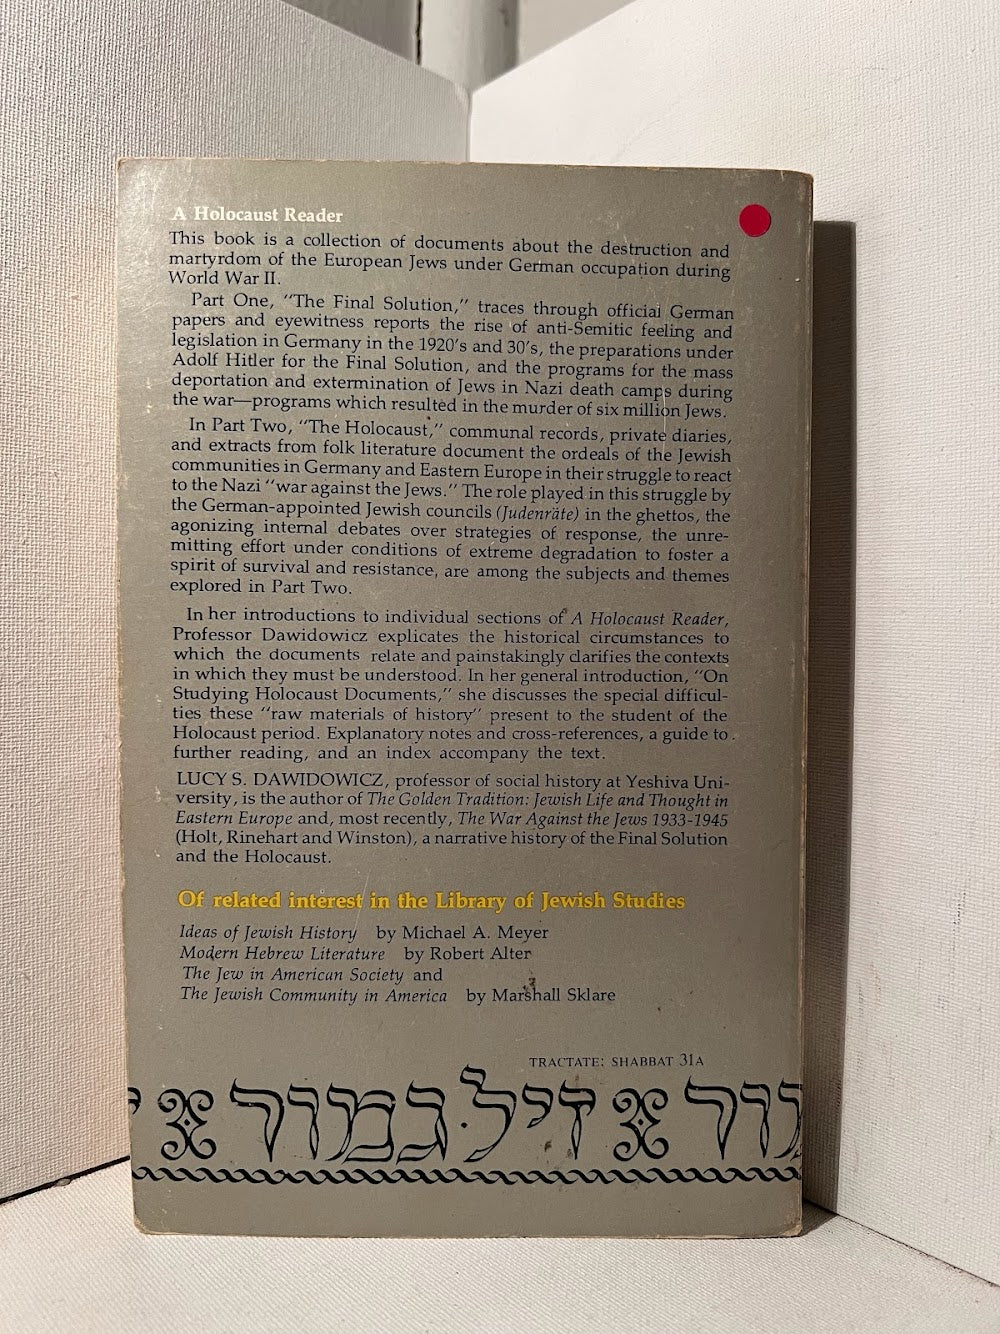 A Holocaust Reader
This book is a collection of documents about the destruction and
martyrdom of the European Jews under German occupation during
World War II.
Part One, "The Final Solution," traces through official German
papers and eyewitness reports the rise of anti-Semitic feeling and
legislation in Germany in the 1920's and 30's, the preparations under
Adolf Hitler for the Final Solution, and the programs for the mass
deportation and extermination of Jews in Nazi death camps during
the war—programs which resulted in the murder of six million Jews.
In Part Two, "The Holocaust," communal records, private diaries,
and extracts from folk literature document the ordeals of the Jewish
communities in Germany and Eastern Europe in their struggle to react
to the Nazi "war against the Jews." The role played in this struggle by
the German-appointed Jewish councils (Judenräte) in the ghettos, the
agonizing internal debates over strategies of response, the unre-
mitting effort under conditions of extreme degradation to foster a
spirit of survival and resistance, are among the subjects and themes
explored in Part Two.
In her introductions to individual sections of A Holocaust Reader,
Professor Dawidowicz explicates the historical circumstances to
which the documents relate and painstakingly clarifies the contexts
in which they must be understood. In her general introduction, "On
Studying Holocaust Documents," she discusses the special difficul-
ties these "raw materials of history" present to the student of the
Holocaust period. Explanatory notes and cross-references, a guide to
further reading, and an index accompany the text.
LUCY S. DAWIDOWICZ, professor of social history at Yeshiva Uni-
versity, is the author of The Golden Tradition: Jewish Life and Thought in
Eastern Europe and, most recently, The War Against the Jews 1933-1945
(Holt, Rinehart and Winston), a narrative history of the Final Solution
and the Holocaust.
Of related interest in the Library of Jewish Studies
Ideas of Jewish History by Michael A. Meyer
Modern Hebrew Literature by Robert Alter
The Jew in American Society and
The Jewish Community in America by Marshall Sklare
TRACTATE: SHABBAT 31A
זיל גמור